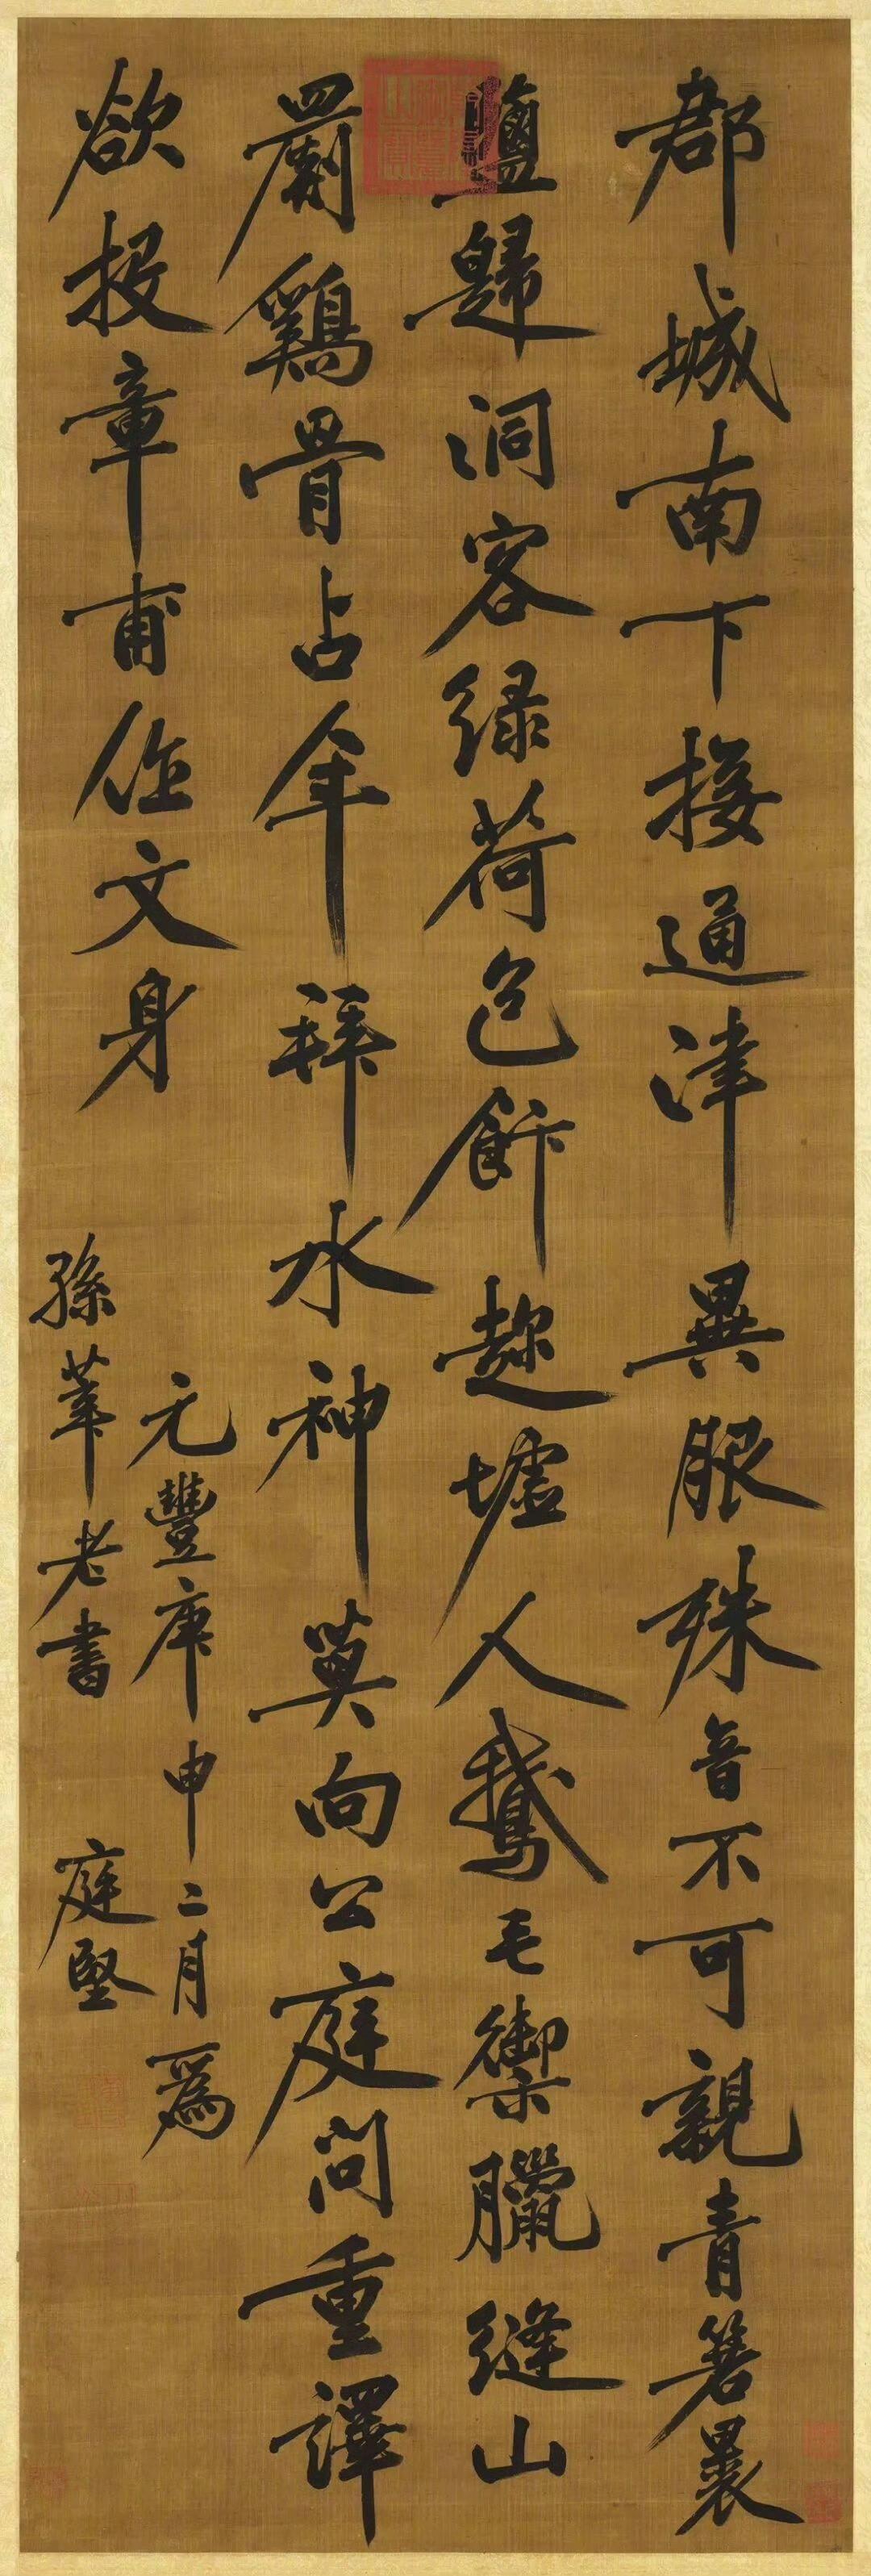 郡城南下接通津異服殊音不可親青箬裹
鹽歸洞客綠荷包飯趁墟人鵝毛御臘縫山
罽鷄骨占年拜水神莫向公庭問重譯
欲投章甫作文身
元豐庚申二月為
孫莘老書
庭堅